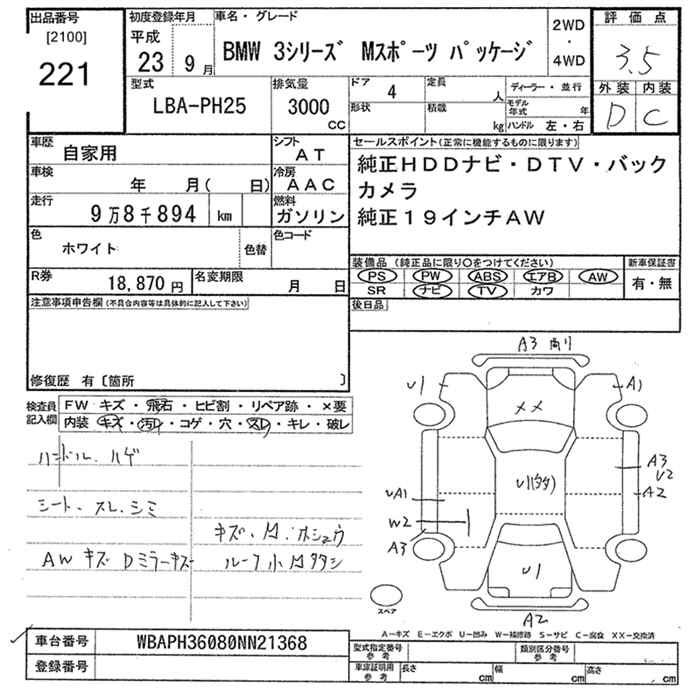 出品番号
[2100]
221
初度登録年月
平成
23 9月
車名・グレード
BMW 3シリーズ Mスポーツ パッケージ
2WD
・
4WD
評価点
3.5
外装 内装
D C
型式
LBA-PH25
排気量
3000
CC
ドア
4
定員
人
形状
積載
kg
ディーラー・並行
モデル年式 年
ハンドル 左・右
車歴
自家用
シフト
AT
車検
年 月( 日)
冷房
AAC
走行
9万8千894 km
燃料
ガソリン
色
ホワイト
色替
色コード
R券
18,870円
名変期限
月 日
セールスポイント(正常に機能するものに限ります)
純正HDDナビ・DTV・バック
カメラ
純正19インチAW
装備品(純正品に限り○をつけてください)
PS PW ABS エアB AW
SR ナビ TV カワ
新車保証書
有・無
後日品
注意事項申告欄(不具合内容等は具体的に記入して下さい)
修復歴 有〔箇所 〕
検査員
記入欄
FW キズ・飛石・ヒビ割・リペア跡・×要
内装 キズ・汚レ・コゲ・穴・スレ・キレ・破レ
ハンドル.ハゲ
シート.スレ.シミ
AW キズ Dミラーキズ
キズ.凹.ホシュウ
ルーフ小凹タタシ
A3
U1
A1
××
A3
U2
A2
UA1
W2
A3
U1
A2
スペア
A-キズ E-エクボ U-凹み W-補修跡 S-サビ C-腐食 XX-交換済
車台番号
WBAPH36080NN21368
登録番号
型式指定番号
参考
類別区分番号
参考
車庫証明用
参考
長さ cm
幅 cm
高さ cm